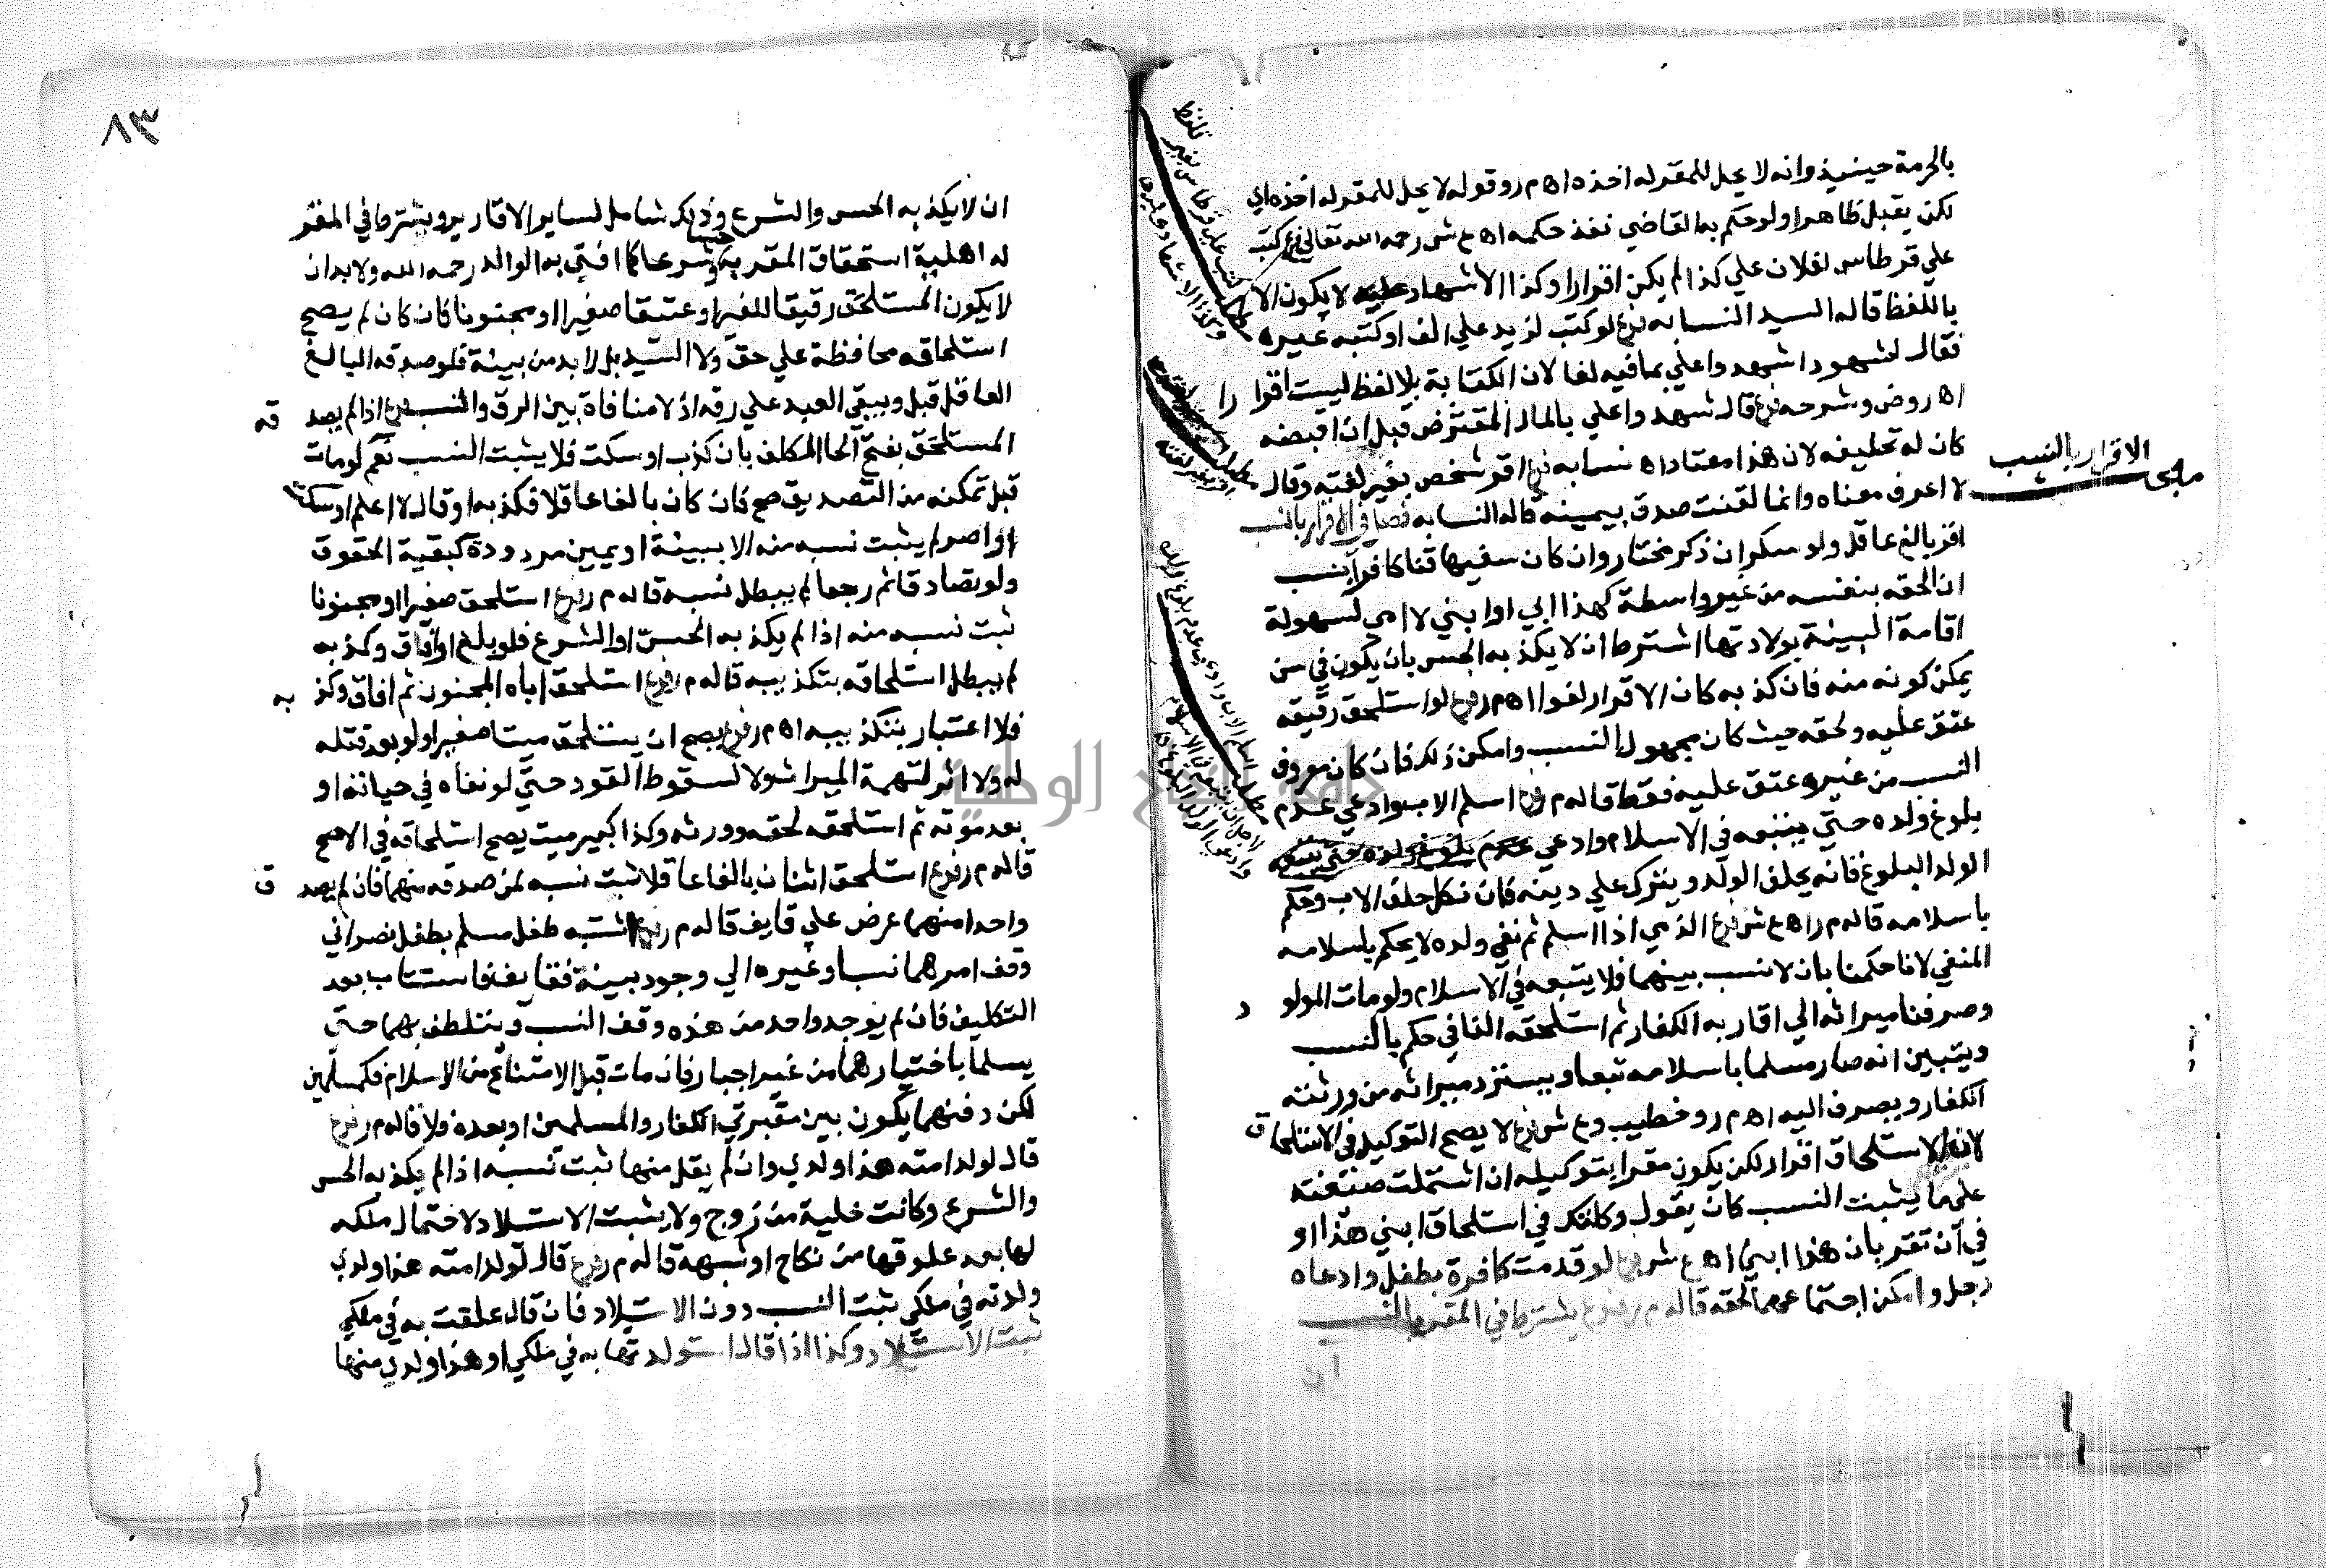 بالحرمة حينيذ وانه لا يحل للمقر له اخذه اه م ر وقوله لا يحل للمقر له اخذه اي
لكن يقبل ظاهرا ولو حكم به القاضي نفذ حكمه اه ع ش رحمه الله تعالى فرع كتب
علي قرطاس لفلان علي كذا لم يكن اقرارا وكذا الاشهاد عليه لا يكون الا
باللفظ قاله السيد النسابه فرع لو كتب لزيد علي الف او كتبه غيره
فقال لشهود اشهدوا علي بما فيه لغا لان الكتابة بلا لفظ ليست اقرارا
اه روض وشرحه فرع قال شهدوا علي بالمال المقترض قبل ان اقبضه
كان له تحليفه لان هذا معتاد اه نسابه فرع اقر شخص بغير لغته وقال
لا اعرف معناه وانما لقنت صدق بيمينه قاله النسابه فصل في الاقرار بالنسب
اقر بالغ عاقل ولو سكران ذكر مختار وان كان سفيها قنا كافرا بنسب
ان الحقه بنفسه من غير واسطة كهذا ابي او ابني لا امي لسهولة
اقامة البينة بولادتها اشترط ان لا يكذبه الحس بان يكون في سن
يمكن كونه منه فان كذبه كان الاقرار لغوا اه م ر فرع لو استلحق رقيقه
عتق عليه ولحقه حيث كان مجهول النسب وامكن ذلك فان كان معروف
النسب من غيره عتق عليه فقط قاله م ر فرع اسلم الاب وادعي عدم
بلوغ ولده حتي يتبعه في الاسلام وادعي
الولد البلوغ فانه يحلف الولد ويترك علي دينه فان نكل حلف الاب وحكم
باسلامه قاله م ر اه ع ش فرع الذمي اذا اسلم ثم نفي ولده لا يحكم باسلامه
المنفي لانا حكمنا بان لا نسب بينهما فلا يتبعه في الاسلام ولو مات المولود
وصرفنا ميراثه الي اقاربه الكفار ثم استلحقه النافي حكم بالنسب
ويتبين انه صار مسلما باسلامه تبعا ويسترد ميراثه من ورثته
الكفار ويصرف اليه اه م ر وخطيب وع ش فرع لا يصح التوكيل في الاستلحاق
لانه الاستلحاق اقرار لكن يكون مقرا بتوكيله ان اشتملت صنعته
علي ما يثبت النسب كان يقول وكلتك في استلحاق ابني هذا او
في ان تقر بان هذا ابني اه ع ش فرع لو قدمت كافرة بطفل وادعاه
رجل وامكن اجتماعهما لحقه قاله م ر فرع يشترط في المقر بالنسب
ان
الاقرار بالنسب
٨٣
ان لا يكذبه الحس والشرع وذلك شامل لساير الاقارير ويشترط في المقر
له اهلية استحقاق المقر به حسا وشرعا كما افتي به الوالد رحمه الله ولا بد ان
لا يكون المستلحق رقيقا للغير او عتيقا صغيرا او مجنونا كان كان لم يصح
استلحاقه محافظة علي حق ولا السيد بل لا بد من بينة فلو صدقه البالغ
العاقل قبل ويبقي العبد علي رقه اذ لا منافاة بين الرق والنسب فرع اذا لم يصدقه
المستلحق بفتح الحا المكلف بان كذب او سكت فلا يثبت النسب نعم لو مات
قبل تمكنه من التصديق صح فان كان بالغا عاقلا فكذبه او قال لا اعلم او سكت
او اصر لم يثبت نسبه منه الا ببينة او يمين مردودة كبقية الحقوق
ولو تصادقا ثم رجعا لم يبطل نسبه قاله م ر فرع استلحق صغيرا او مجنونا
ثبت نسبه منه اذا لم يكذبه الحس او الشرع فلو بلغ او افاق وكذبه
لم يبطل استلحاقه بتكذيبه قاله م ر فرع استلحق اباه المجنون ثم افاق وكذبه
فلا اعتبار بتكذيبه اه م ر فرع يصح ان يستلحق ميتا صغيرا ولو بعد قتله
له ولا اثر لتهمة الميراث ولا لسقوط القود حتي لو نفاه في حياته او
بعد موته ثم استلحقه لحقه وورثه وكذا كبير ميت يصح استلحاقه في الاصح
قاله م ر فرع استلحق اثنان بالغا عاقلا ثبت نسبه لمن صدقه منهما فان لم يصدق
واحدا منهما عرض علي قايف قاله م ر فرع اشتبه طفل مسلم بطفل نصراني
وقف امرهما نسبا وغيره الي وجود بينة فقايف فانتساب بعد
التكليف فان لم يوجد واحد من هذه وقف النسب ويتلطف بهما حتي
يسلما باختيارهما من غير اجبار فان مات قبل الامتناع من الاسلام فكمسلمين
لكن دفنهما يكون بين مقبرتي الكفار والمسلمين او بعده فلا قاله م ر فرع
قال لولد امته هذا ولدي وان لم يقل منها ثبت نسبه اذا لم يكذبه الحس
والشرع وكانت خلية من زوج ولا يثبت الاستيلاد لاحتمال ملكه
لها بعد علوقها من نكاح او شبهة قاله م ر فرع قال لولد امته هذا ولدي
ولدته في ملكي ثبت النسب دون الاستيلاد فان قال علقت به في ملكي
ثبت الاستيلاد وكذا اذا قال استولدتها به في ملكي او هذا ولدي منها
جامعة النجاح الوطنية